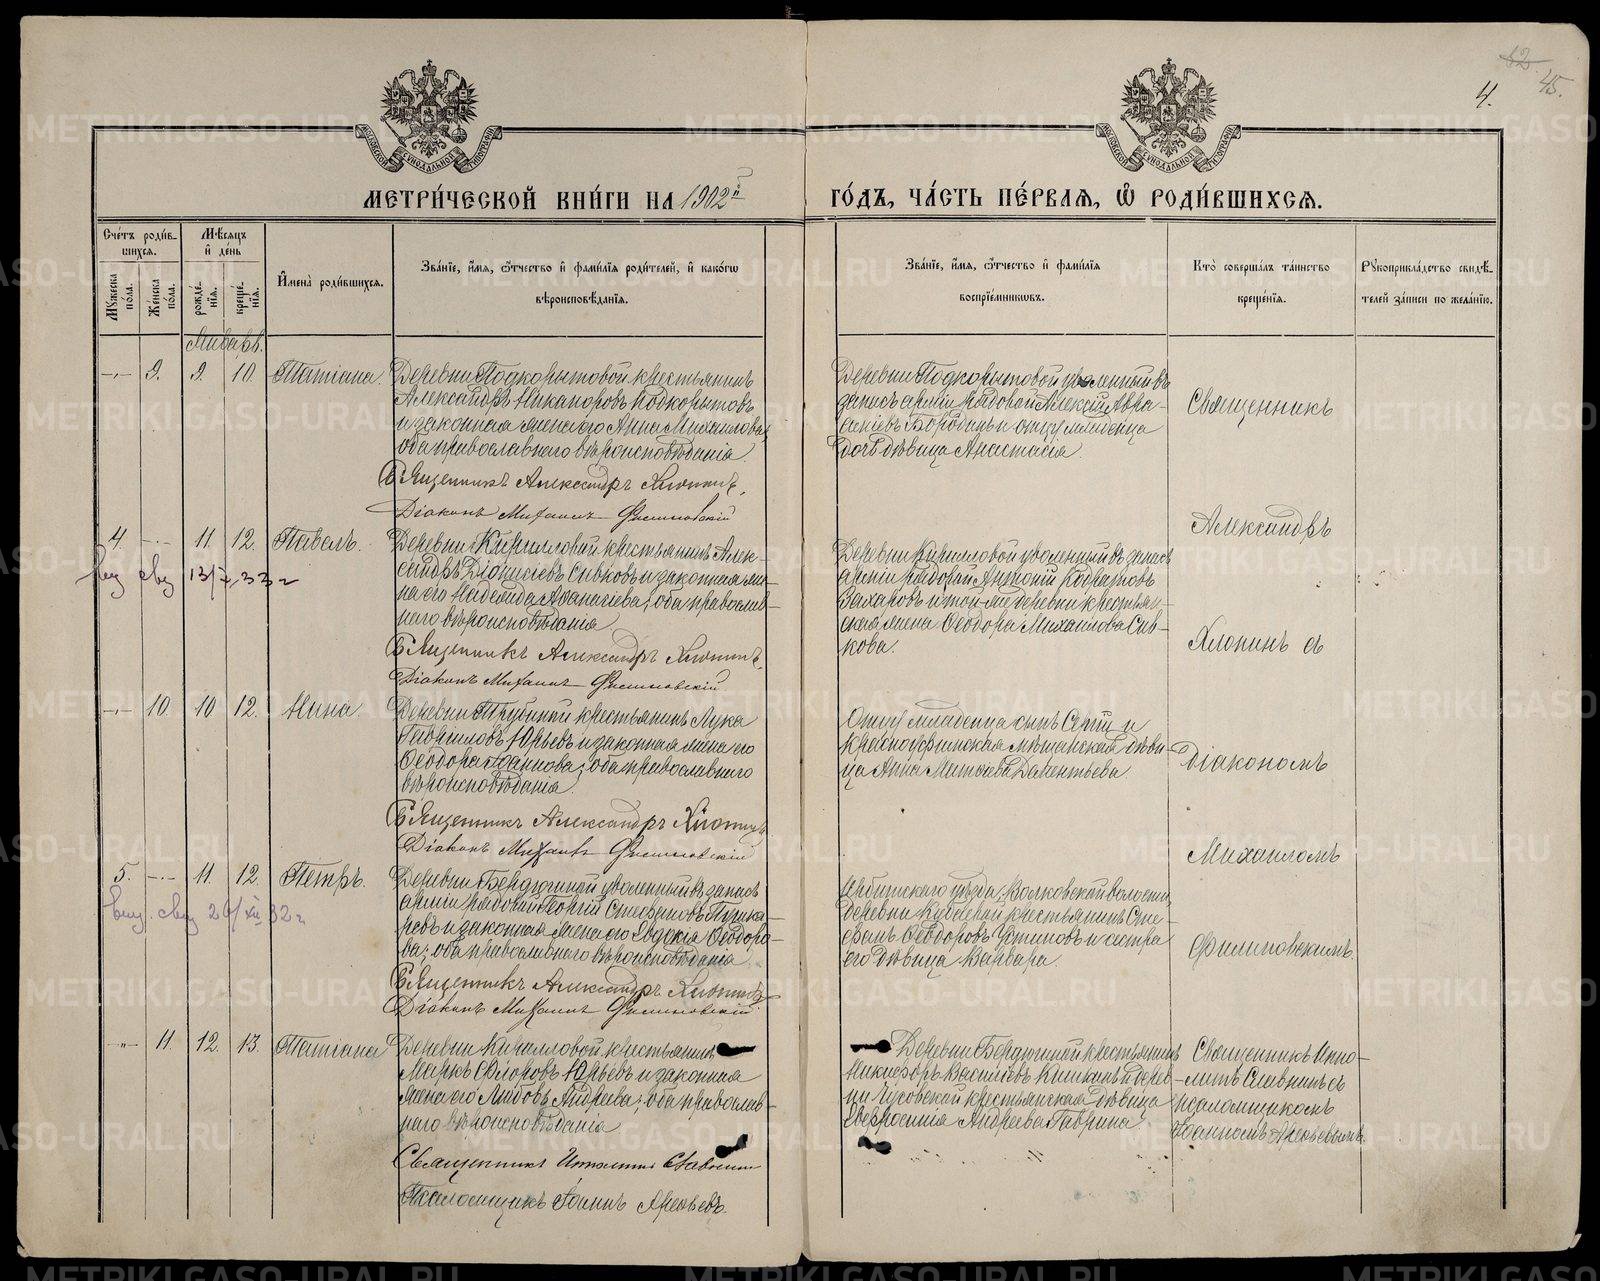 62
45.
4.
МОСКОВСКОЙ СѴНОДАЛЬНОЙ ТИПОГРАФІИ
МОСКОВСКОЙ СѴНОДАЛЬНОЙ ТИПОГРАФІИ
МЕТРИ́ЧЕСКОЙ КНИ́ГИ НА 1902й
ГО́ДЪ, ЧА́СТЬ ПЕ́РВАѦ, Ѡ҆ РОДИ́ВШИХСѦ.
Сче́тъ роди́в-
шихсѧ.
Мꙋ́жеска по́ла.
Же́нска по́ла.
Мѣ́сѧцъ
и҆ де́нь
рожде́-
нїѧ.
креще́-
нїѧ.
И҆мена̀ роди́вшихсѧ.
Зва́нїе, и҆́мѧ, ѻ҆́тчество и҆ фами́лїѧ роди́телей, и҆ како́гѡ
вѣроисповѣ́данїѧ.
Зва́нїе, и҆́мѧ, ѻ҆́тчество и҆ фами́лїѧ
воспрїе́мникѡвъ.
Кто̀ соверша́лъ та́инство
креще́нїѧ.
Рꙋкоприкла́дство свидѣ́-
телей за́писи по жела́нїю.
Январь.
-"- 9. 9. 10. Татіана.
Деревни Подкорытовой крестьянинъ
Александръ Никаноровъ Подкорытовъ
и законная жена его Анна Михайлова,
оба православнаго вѣроисповѣданія.
Священникъ Александръ Хлопинъ,
Діаконъ Михаилъ Филиповскій
Деревни Подкорытовой уволенный въ
запасъ арміи рядовой Алексій Авра-
Бородинъ и отцу младенца
дочь дѣвица Анастасія.
Священникъ
Александръ
4. -"- 11. 12. Павелъ.
выд свид 13/X 33 г
Деревни Кирилловой крестьянинъ Алек-
сандръ Діонисіевъ Сивковъ и законная же-
на его Надежда Аѳанасіева, оба православ-
наго вѣроисповѣданія
Священникъ Александръ Хлопинъ,
Діаконъ Михаилъ Филиповскій
Деревни Кирилловой уволенный въ запасъ
арміи рядовой Антоній
Захаровъ и той-же деревни крестьян-
ская жена Ѳеодора Михайлова Сив-
кова.
Хлопинъ съ
-"- 10. 10 12. Нина.
Деревни Трубиной крестьянинъ Лука
Гавриловъ Юрьевъ и законная жена его
Ѳеодора Іоаннова, оба православнаго
вѣроисповѣданія.
Священникъ Александръ Хлопинъ
Діаконъ Михаилъ Филиповскій
Отцу младенца сынъ Сергій и
Красноуфимская мѣщанская дѣви-
ца Анна Дементьева
Діакономъ
Михаиломъ
5. -"- 11. 12. Петръ.
выд. свид 26/XII 32 г
Деревни Бердюгиной уволенный въ запасъ
арміи рядовой Георгій Стефановъ Пушка-
ревъ и законная жена его Евдокія Ѳеодоро-
ва, оба православнаго вѣроисповѣданія
Священникъ Александръ Хлопинъ
Діаконъ Михаилъ Филиповскій
Ирбитскаго уѣзда, Волковской волости,
деревни крестьянинъ Сте-
фанъ Ѳеодоровъ Устиновъ и сестра
его дѣвица Варвара.
Филиповскимъ.
-"- 11 12. 13. Татіана
Деревни Кирилловой крестьянинъ
Маркъ Флоровъ Юрьевъ и законная
жена его Любовь Андреева, оба православ-
наго вѣроисповѣданія
Священникъ Ипполитъ Славнинъ
Псаломщикъ Іоаннъ Арефьевъ.
Деревни Бердюгиной крестьянинъ
Никифоръ Васильевъ Кишкинъ и дерев-
ни Чусовской крестьянская дѣвица
Евфросинія Андреева Гаврина
Священникъ Иппо-
литъ Славнинъ съ
псаломщикомъ
Іоанномъ Арефьевымъ.
METRIKI.GASO-URAL.RU